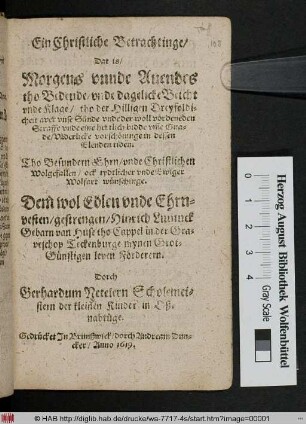 Ein Christliche Betrachtinge/
Dat is/
Morgens vnnde Auendes
tho Bedende/ vnde dagelicke Beicht
vnde Klage/ tho der Hilligen Dreyfoldi-
cheit auer vnse Sünde vnde der woll vordeneden
Straffe vnde eine hertlich bidde vmme Gna-
de/ Väderlicke vorschöninge in dessen
Elenden tiden.
Tho Besundern Ehrn/ vnde Christlichen
Wolgefallen/ ock tydtlicher vnde Ewiger
Wolfart wünschinge.
Dem wol Edlen vnde Ehrn-
vesten/ gestrengen/ Hinrich
Gebarn van Huse tho Cappel in der Gra-
veschop Teckenburge mynen Grot-
Günstigen leven Förderern.
Dorch
Gerhardum Netelern Scholemei-
stern der kleinen Kinder in Oß-
nabrüge.
Gedrücket In Brunswick/ dorch Andream Dun-
cker/ Anno 1619.
Herzog August Bibliothek Wolfenbüttel
Gray Scale
© HAB http://diglib.hab.de/drucke/ws-7717-4s/start.htm?image=00001